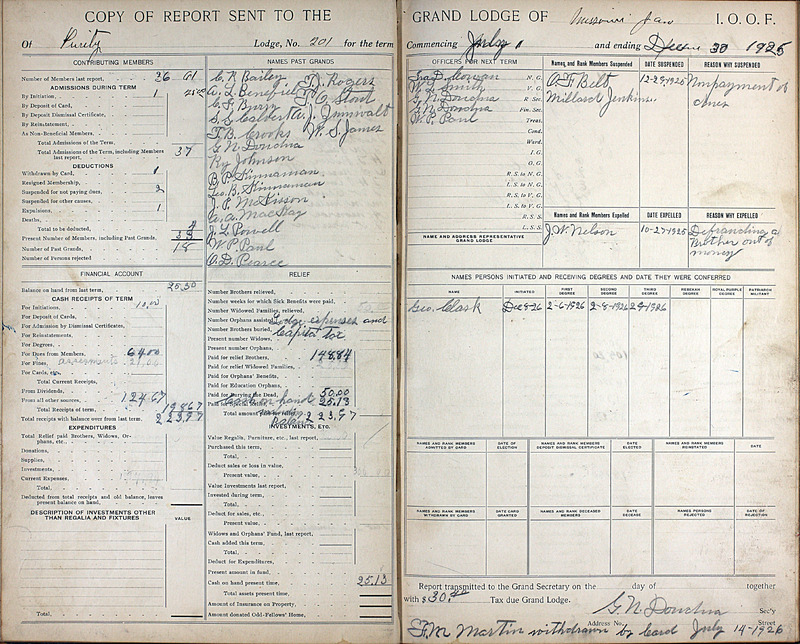 COPY OF REPORT SENT TO THE
Of Purity Lodge, No. 201 for the term
CONTRIBUTING MEMBERS
Number of Members last report, 36
ADMISSIONS DURING TERM
By Initiation, 1
By Deposit of Card,
By Deposit Dismissal Certificate,
By Reinstatement,
As Non-Beneficial Members,
Total Admissions of the Term,
Total Admissions of the Term, including Members last report, 37
DEDUCTIONS
Withdrawn by Card, 1
Resigned Membership,
Suspended for not paying dues, 2
Suspended for other causes,
Expulsions, 1
Deaths,
Total to be deducted, 4
Present Number of Members, including Past Grands, 33
Number of Past Grands, 18
Number of Persons rejected
NAMES PAST GRANDS
C. R. Bailey
A. L. Benefiel
C. S. Byrn
S. G. Calvert
F. B. Crooks
G. N. Doudna
Ray Johnson
B. P. Kinnaman
Geo. B. Kinnaman
J. P. McKisson
A. A. MacKay
J. L. Powell
W. P. Paul
O. D. Pearce
Rogers
Stout
W. S. James
FINANCIAL ACCOUNT
Balance on hand from last term, 25.30
CASH RECEIPTS OF TERM
For Initiations, 10.00
For Deposit of Cards,
For Admission by Dismissal Certificates,
For Reinstatements,
For Degrees,
For Dues from Members, 64.00
For Fines, assessments
For Cards, etc.
Total Current Receipts,
From Dividends,
From all other sources, 124.67
Total Receipts of term, 198.67
Total receipts with balance over from last term, 223.97
EXPENDITURES
Total Relief paid Brothers, Widows, Orphans, etc.,
Donations,
Supplies,
Investments,
Current Expenses,
Total,
Deducted from total receipts and old balance, leaves present balance on hand,
DESCRIPTION OF INVESTMENTS OTHER THAN REGALIA AND FIXTURES
VALUE
Total,
RELIEF
Number Brothers relieved,
Number weeks for which Sick Benefits were paid,
Number Widowed Families, relieved,
Number Orphans assisted, Lodge expenses and
Number Brothers buried, Capita tax
Present number Widows,
Present number Orphans,
Paid for relief Brothers, 148.84
Paid for relief Widowed Families,
Paid for Orphans' Benefits,
Paid for Education Orphans,
Paid for Burying the Dead, 50.00
Paid for Special Relief, Cash on hand 25.13
Total amount 223.97
INVESTMENTS, ETC.
Value Regalia, Furniture, etc., last report,
Purchased this term,
Total,
Deduct sales or loss in value,
Present value,
Value Investments last report,
Invested during term,
Total,
Deduct for sales, etc.,
Present value,
Widows and Orphans' Fund, last report,
Cash added this term,
Total,
Deduct for Expenditures,
Present amount in fund,
Cash on hand present time, 25.13
Total assets present time,
Amount of Insurance on Property,
Amount donated Odd-Fellows' Home,
GRAND LODGE OF Missouri I. O. O. F.
Commencing July 1 and ending Dec 30 1925
OFFICERS FOR NEXT TERM
Ira D. Cowan N. G.
W. L. Smith V. G.
G. N. Doudna R. Sec.
G. N. Doudna Fin. Sec.
W. P. Paul Treas.
Cond.
Ward.
I. G.
O. G.
R. S. to N. G.
L. S. to N. G.
R. S. to V. G.
L. S. to V. G.
R. S. S.
L. S. S.
NAME AND ADDRESS REPRESENTATIVE GRAND LODGE
Names and Rank Members Suspended
DATE SUSPENDED
REASON WHY SUSPENDED
A. F. Belt 12-29-1925 Nonpayment of
Millard Jenkins. dues
Names and Rank Members Expelled
DATE EXPELLED
REASON WHY EXPELLED
J. W. Nelson 10-27-1925 Defrauding a
Brother out of
money
NAMES PERSONS INITIATED AND RECEIVING DEGREES AND DATE THEY WERE CONFERRED
NAME
INITIATED
FIRST DEGREE
SECOND DEGREE
THIRD DEGREE
REBEKAH DEGREE
ROYAL PURPLE DEGREE
PATRIARCH MILITANT
Geo. Clark 2-6-1926 2-8-1926
NAMES AND RANK MEMBERS ADMITTED BY CARD
DATE OF ELECTION
NAMES AND RANK MEMBERS DEPOSIT DISMISSAL CERTIFICATE
DATE ELECTED
NAMES AND RANK MEMBERS REINSTATED
DATE
NAMES AND RANK MEMBERS WITHDRAWN BY CARD
DATE CARD GRANTED
NAMES AND RANK DECEASED MEMBERS
DATE DECEASE
NAMES PERSONS REJECTED
DATE OF REJECTION
Report transmitted to the Grand Secretary on the day of together
with $30.40 Tax due Grand Lodge.
G. N. Doudna Sec'y
Address No. Street
F. M. Martin withdrawn by Card July 14-1926